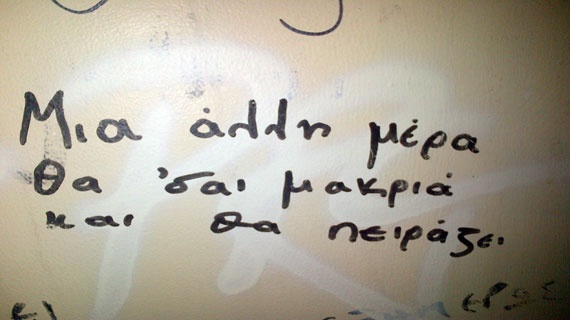 Μια άλλη μέρα
θα 'σαι μακριά
και θα πειράζει